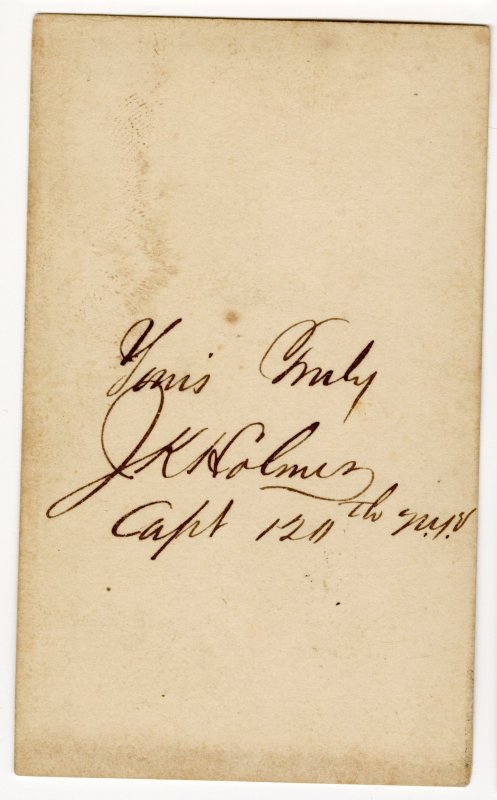 Yours Truly
J K Holmes
Capt 120th N.Y.V